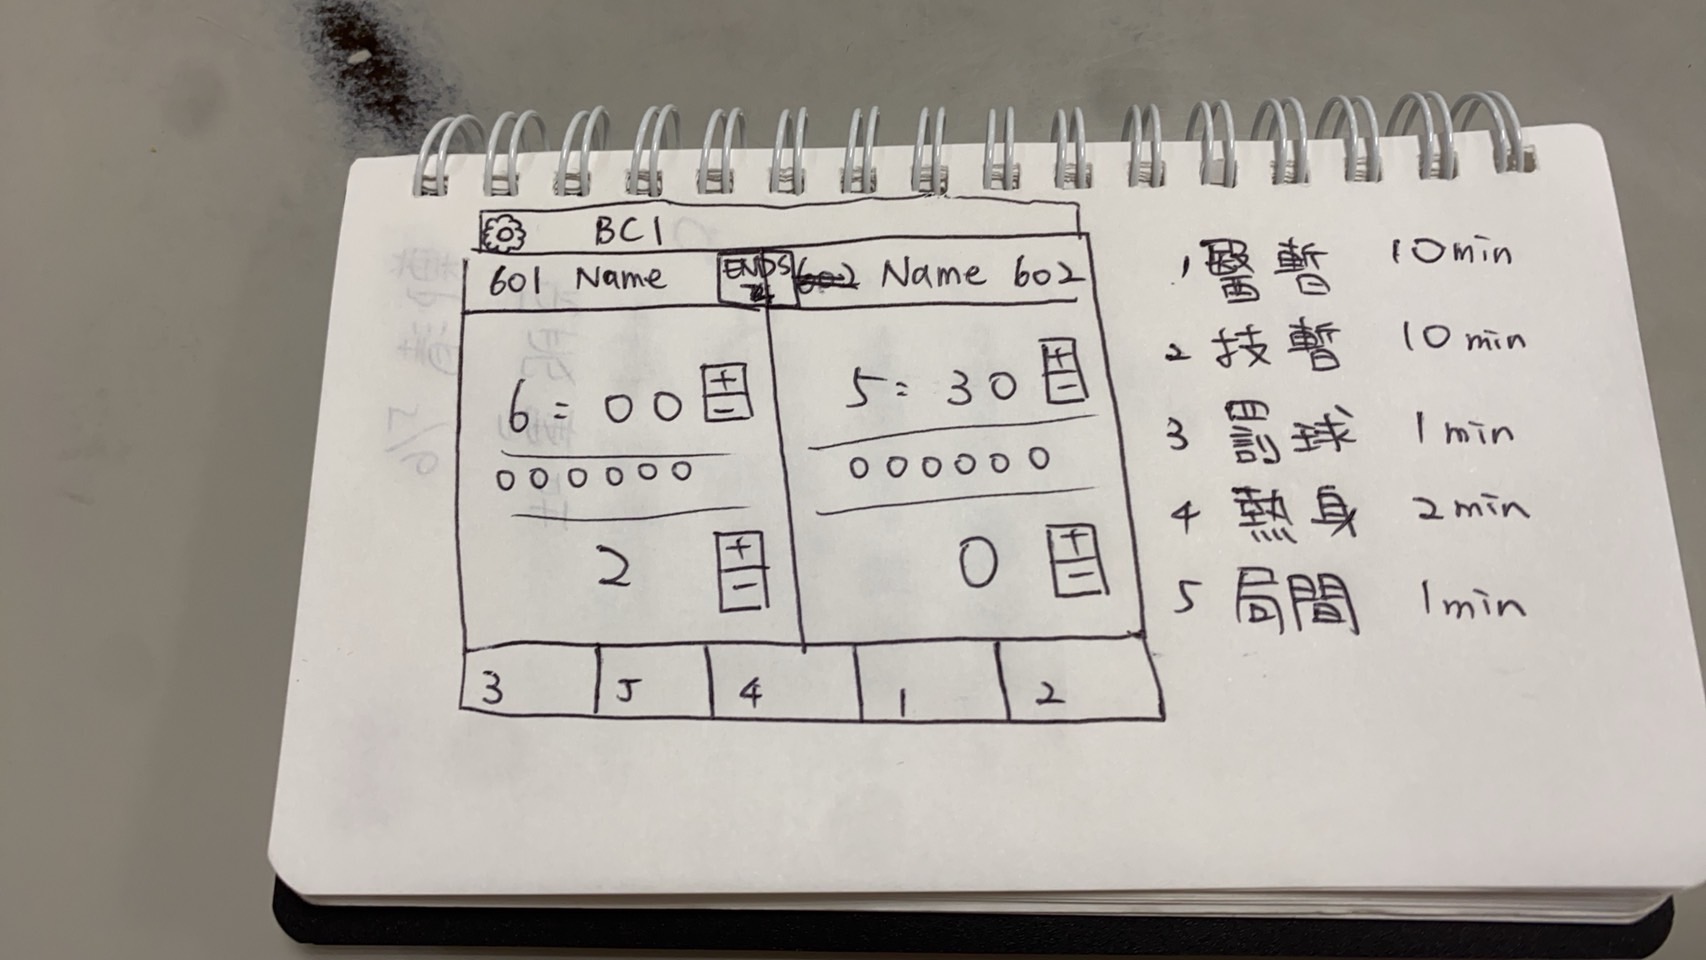 BC1
601 Name ENDS Name 602
6:00 + - 5:30 + -
000000 000000
2 + - 0 + -
3 5 4 1 2
1 醫暫 10min
2 技暫 10min
3 罰球 1min
4 熱身 2min
5 局間 1min